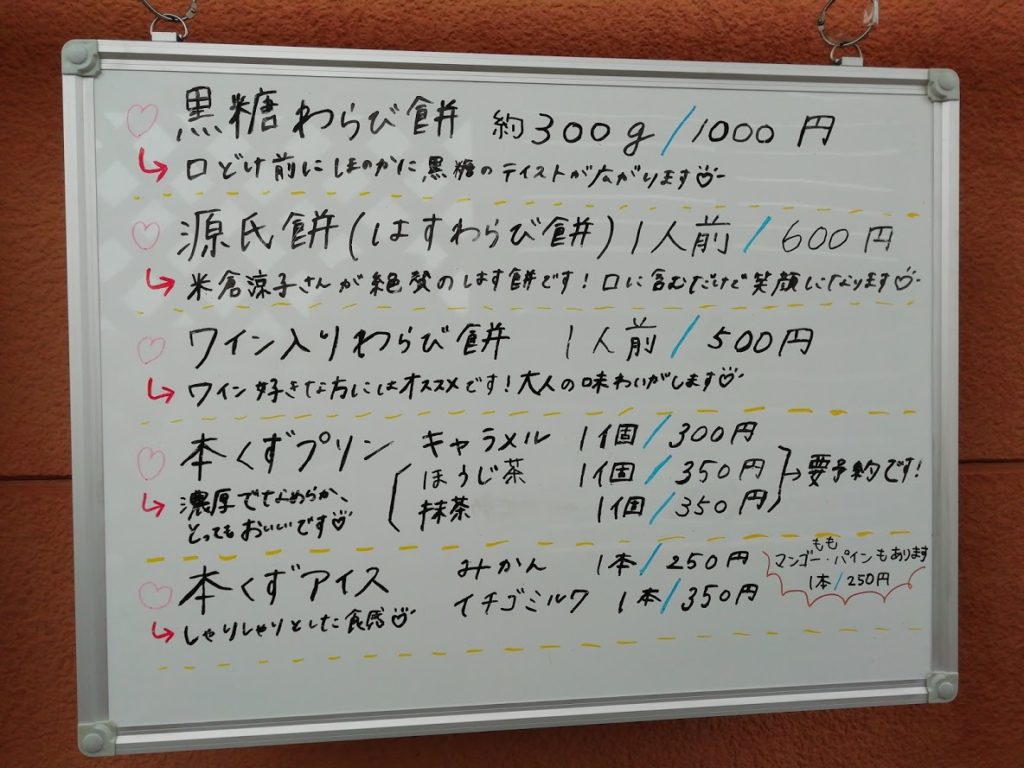 ♡ 黒糖わらび餅 約300g/1000円
↳ 口どけ前にほのかに黒糖のテイストが広がります♡
♡ 源氏餅(はすわらび餅) 1人前/600円
↳ 米倉涼子さんが絶賛のはす餅です!口に含むだけで笑顔になります♡
♡ ワイン入りわらび餅 1人前/500円
↳ ワイン好きな方にはオススメです!大人の味わいがします♡
♡ 本くずプリン キャラメル 1個/300円
ほうじ茶 1個/350円
抹茶 1個/350円
→要予約です!
↳ 濃厚でなめらか、
とってもおいしいです♡
♡ 本くずアイス みかん 1本/250円
イチゴミルク 1本/350円
もも
マンゴー・パインもあります
1本/250円
↳ しゃりしゃりとした食感♡